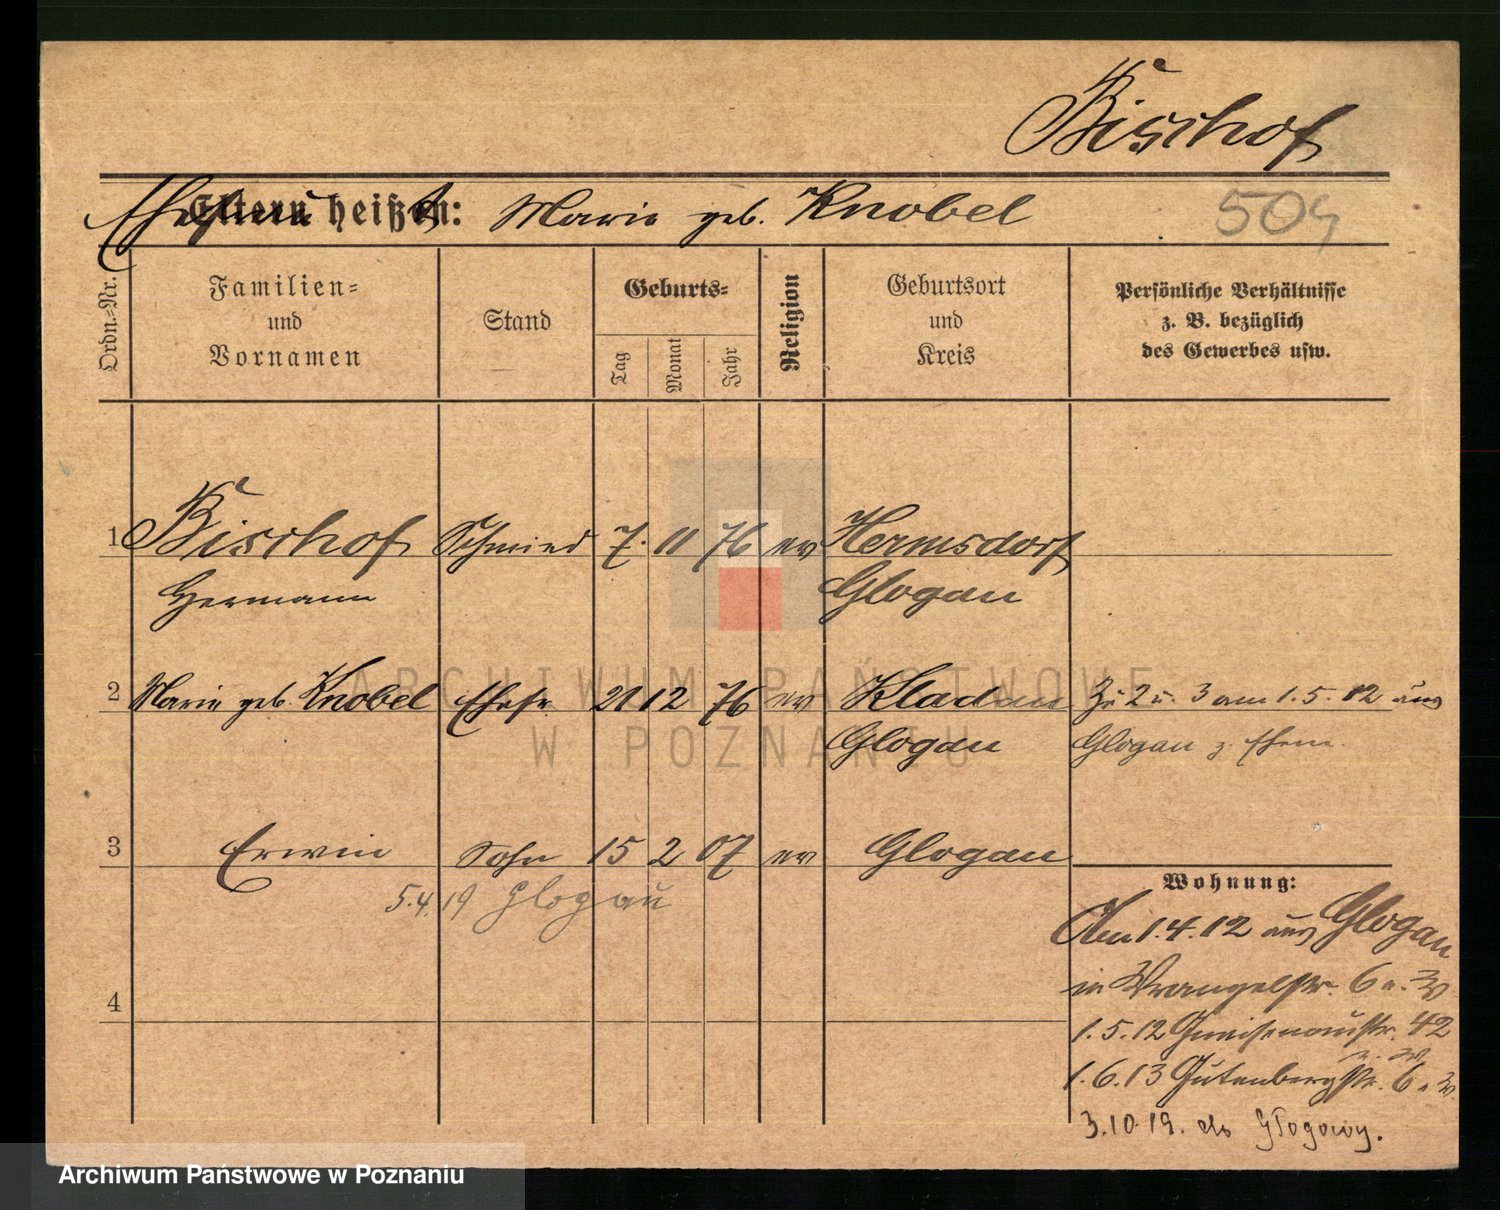 Bischof
Eltern heißen: Marie geb. Knobel
504
Ordn.-Nr.
Familien-
und
Vornamen
Stand
Geburts-
Tag
Monat
Jahr
Religion
Geburtsort
und
Kreis
Persönliche Verhältnisse
z. B. bezüglich
des Gewerbes usw.
1 Bischof Schmied 7. 11 76 ev Hermsdorf
Hermann Glogau
2 Marie geb. Knobel Ehefr 21 12 76 ev Kladau Zu 2 u. 3 am 1.5.12 aus
Glogau Glogau z. Ehem.
3 Erwin Sohn 15 2 07 ev Glogau
5.4.19 Glogau
4
Wohnung:
Am 1.4.12 aus Glogau
in Wrangelstr. 6 b. W
1.5.12 Gneisenaustr. 42
1.6.13 Gutenbergstr. 6
3.10.19. do Głogowy.
ARCHIWUM PAŃSTWOWE
W POZNANIU
Archiwum Państwowe w Poznaniu